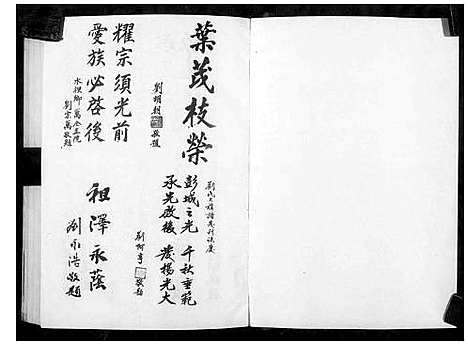 葉茂枝榮
劉明朝
敬題
耀宗須光前
愛族必啓後
水裡鄉萬全立院
劉宗萬敬題
劉氏大族譜志刊誌慶
彭城之光 千秋垂範
承先啟後 發揚光大
劉阿亨
敬題
祖澤永蔭
劉永浩敬題